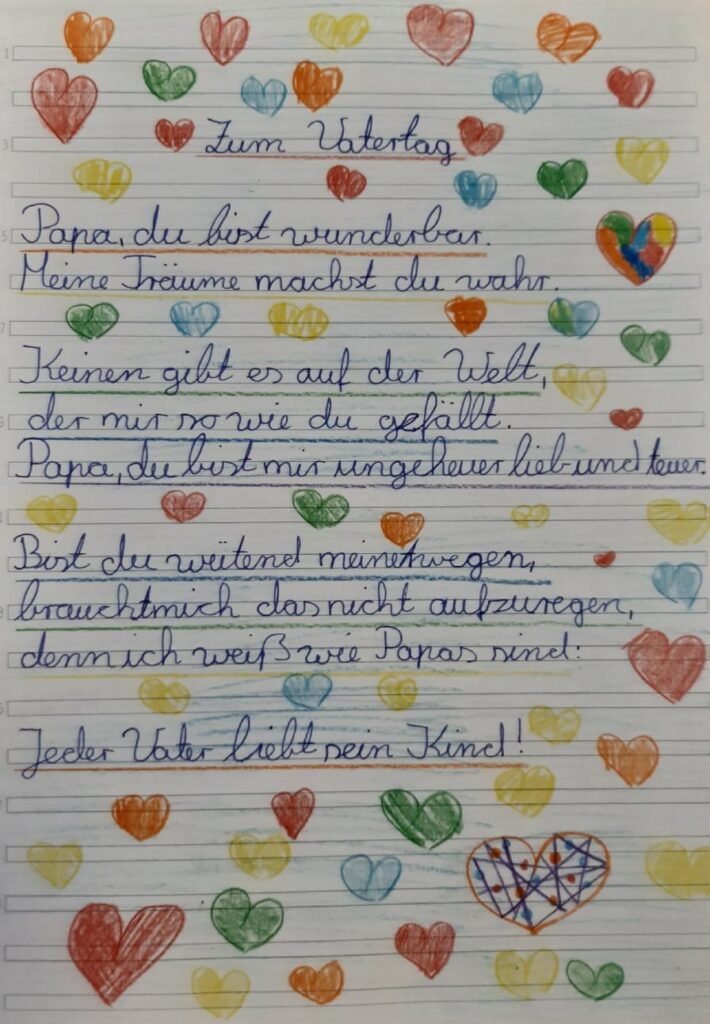 Zum Vatertag
Papa, du bist wunderbar.
Meine Träume machst du wahr.
Keinen gibt es auf der Welt,
der mir so wie du gefällt.
Papa, du bist mir ungeheuer lieb und teuer.
Bist du wütend meinetwegen,
braucht mich das nicht aufzuregen,
denn ich weiß wie Papas sind:
Jeder Vater liebt sein Kind!